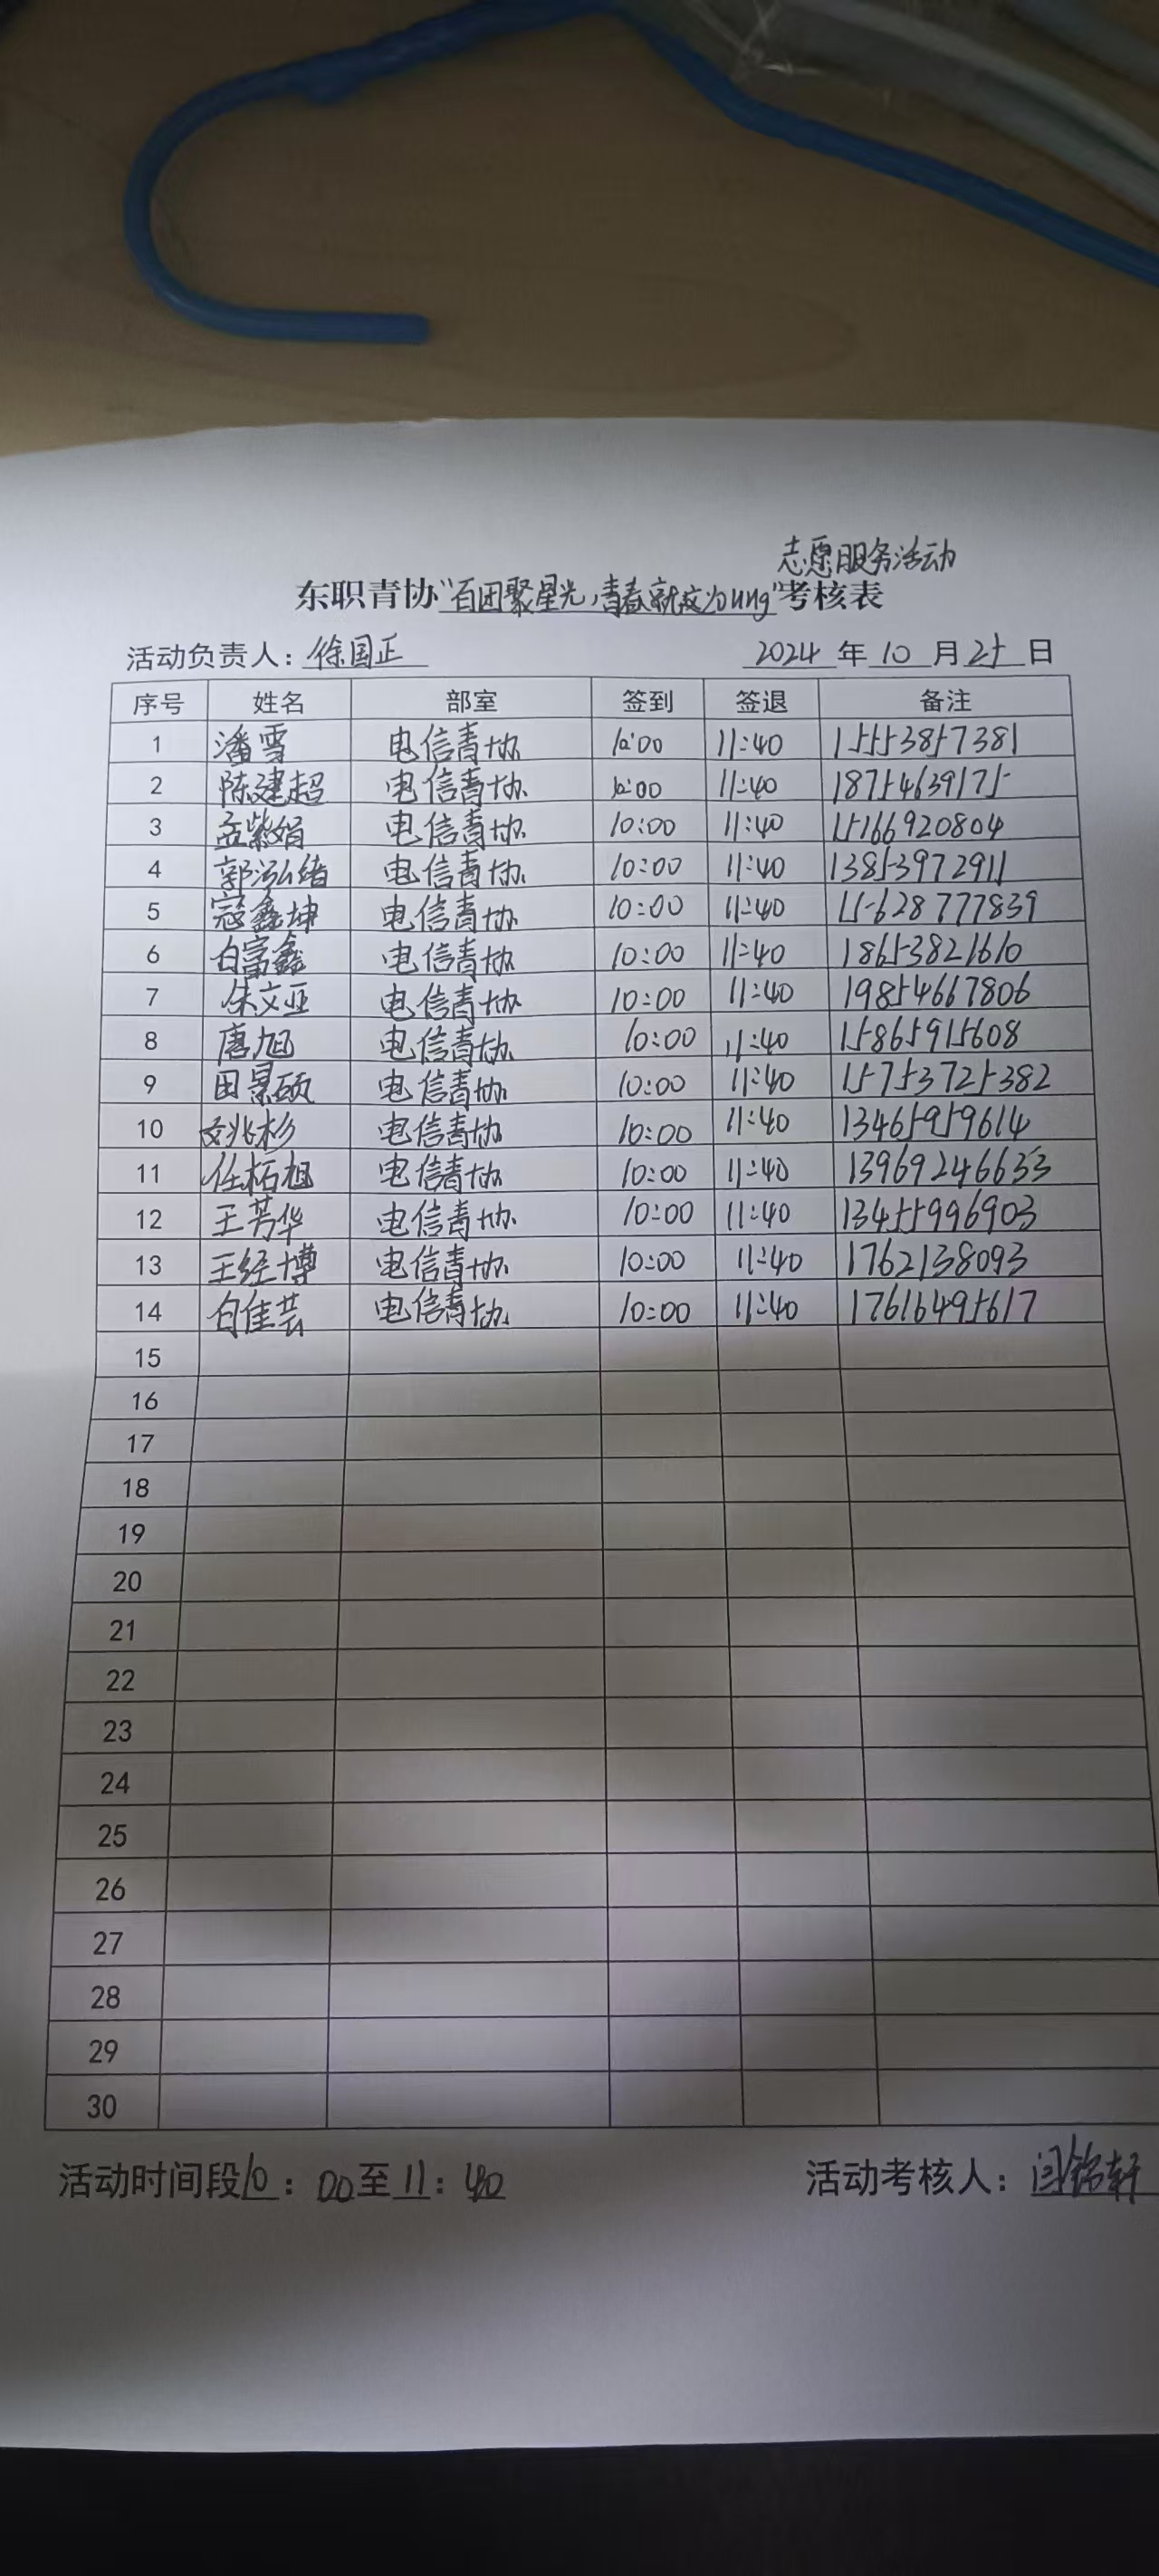 志愿服务活动
东职青协"百团聚星光,青春就这Young"考核表
活动负责人:徐国正 2024年10月25日
序号 姓名 部室 签到 签退 备注
1 潘雪 电信青协 10:00 11:40 15553857381
2 陈建超 电信青协 10:00 11:40 18754639175
3 孟紫娟 电信青协 10:00 11:40 15166920804
4 郭泓绪 电信青协 10:00 11:40 13853972911
5 寇鑫坤 电信青协 10:00 11:40 15628777839
6 白富鑫 电信青协 10:00 11:40 18653821610
7 朱文亚 电信青协 10:00 11:40 19854667806
8 唐旭 电信青协 10:00 11:40 15865915608
9 田景硕 电信青协 10:00 11:40 15753725382
10 电信青协 10:00 11:40 13465959614
11 任柘旭 电信青协 10:00 11:40 13969246633
12 王芳华 电信青协 10:00 11:40 13455996903
13 王经博 电信青协 10:00 11:40 1762138093
14 白佳芸 电信青协 10:00 11:40 17616495617
15
16
17
18
19
20
21
22
23
24
25
26
27
28
29
30
活动时间段10:00至11:40 活动考核人:闫铭轩